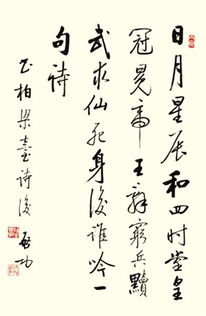 日月星辰和四时堂皇
冠冕帝王辞穷兵黩
武求仙死身后谁吟一
句诗
书柏梁臺诗后 启功